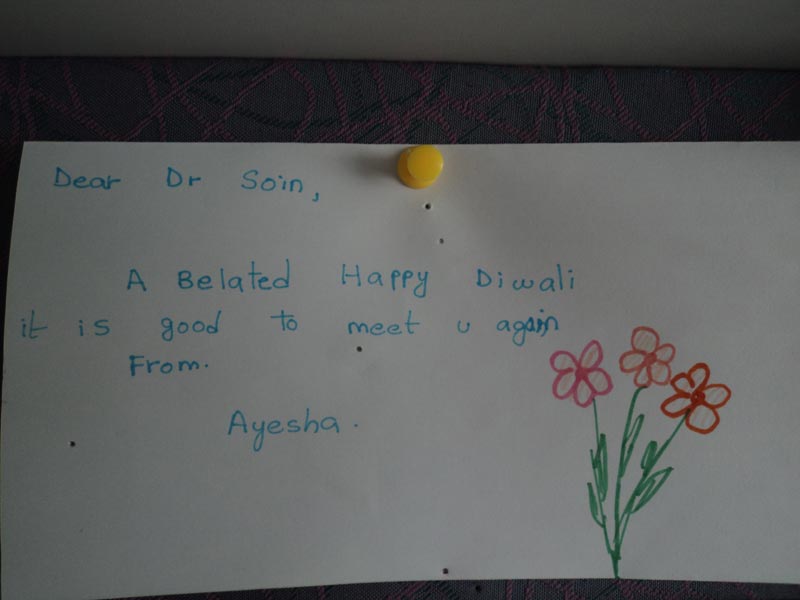 Dear Dr Soin,
A Belated Happy Diwali
it is good to meet u again
From.
Ayesha.